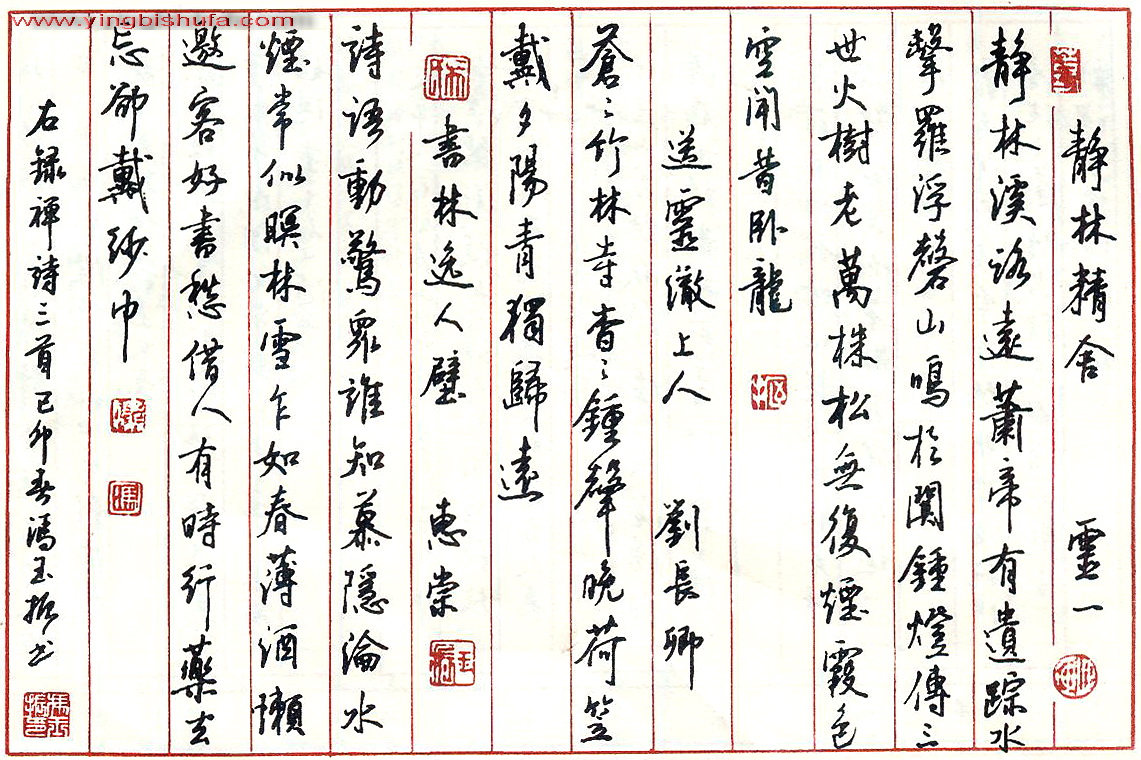 www.yingbishufa.com
静林精舍 靈一
静林溪路遠蕭帝有遺踪水
擊羅浮磬山鳴於闐鍾燈傳三
世火樹老萬株松無復煙霞色
空聞昔卧龍
送靈澈上人 劉長卿
蒼〻竹林寺杳〻鍾聲晚荷笠
戴夕陽青獨歸遠
書林逸人壁 惠崇
詩語動驚衆誰知慕隱淪水
煙常似暝林雪乍如春薄酒懶
邀客好書愁借人有時行藥去
忘卻戴紗巾
右録禪詩三首己卯春馮玉振书